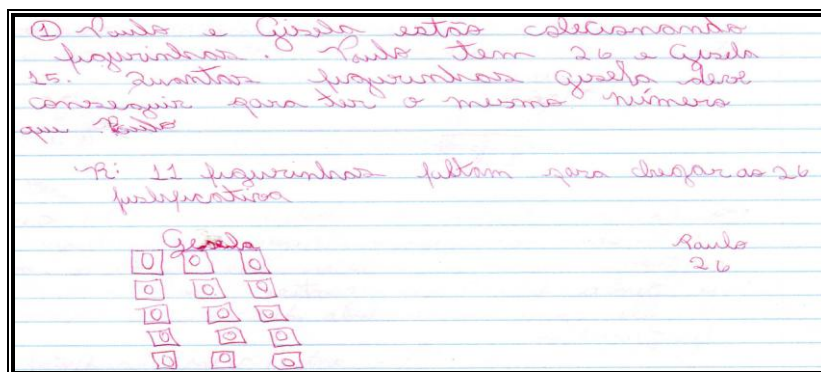 ① Paulo e Gisela estão colecionando
figurinhas. Paulo tem 26 e Gisela
15. Quantas figurinhas Gisela deve
conseguir para ter o mesmo número
que Paulo
R: 11 figurinhas faltam para chegar ao 26
justificativa
Gesela
Paulo
26